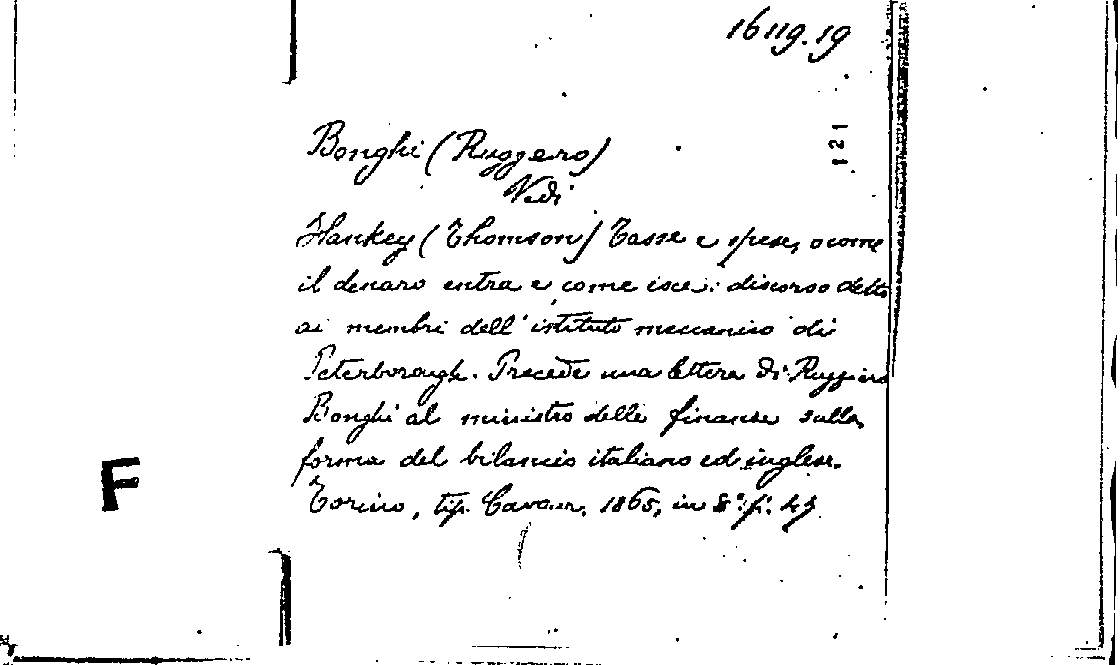 16119.19
121
Bonghi (Ruggero)
Vedi
Hankey (Thomson) Tasse e spese, o come
il denaro entra e come esce: discorso detto
ai membri dell' istituto meccanico di
Peterborough. Precede una lettera di Ruggiero
Bonghi al ministro delle finanze sulla
forma del bilancio italiano ed inglese.
Torino, tip. Cavour, 1865, in 8° p.
F